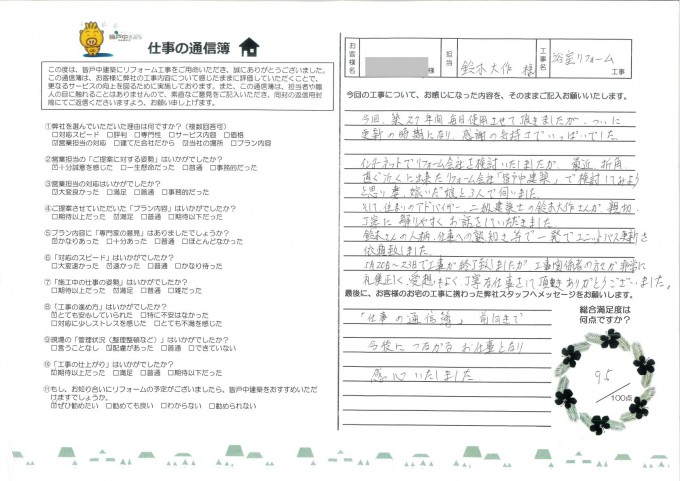 皆戸中建築
仕事の通信簿
この度は、皆戸中建築にリフォーム工事をご用命いただき、誠にありがとうございました。
この通信簿は、お客様に弊社の工事内容について感じたままに評価していただくことで、
更なるサービスの向上を図るために実施しております。また、この通信簿は、担当者や職
人の目に触れることはありませんので、素直なご意見をご記入いただき、同封の返信用封
筒にてご返信くださいますよう、お願い申し上げます。
①弊社を選んでいただいた理由は何ですか？（複数回答可）
□対応スピード □評判 □専門性 □サービス内容 □価格
☑営業担当の対応 □建てた会社だから ☑当社の場所 □プラン内容
②営業担当の「ご提案に対する姿勢」はいかがでしたか？
☑十分誠意を感じた □一生懸命だった □普通 □事務的だった
③営業担当の対応はいかがでしたか？
☑大変良かった □満足 □普通 □事務的だった
④ご提案させていただいた「プラン内容」はいかがでしたか？
□期待以上だった ☑満足 □普通 □期待以下だった
⑤プラン内容に「専門家の意見」はありましたでしょうか？
☑かなりあった □十分あった □普通 □ほとんどなかった
⑥「対応のスピード」はいかがでしたか？
□大変速かった ☑速かった □普通 □かなり待った
⑦「施工中の仕事の姿勢」はいかがでしたか？
□期待以上だった ☑満足 □普通 □雑だった
⑧「工事の進め方」はいかがでしたか？
☑とても安心していられた □特に不安はなかった
□対応に少しストレスを感じた □とても不満を感じた
⑨現場の「管理状況（整理整頓など）」はいかがでしたか？
□言うことなし ☑配慮があった □普通 □できていない
⑩「工事の仕上がり」はいかがでしたか？
☑期待以上だった □満足 □普通 □期待以下だった
⑪もし、お知り合いにリフォームの予定がございましたら、皆戸中建築をおすすめいただ
けますでしょうか。
☑ぜひ勧めたい □勧めても良い □わからない □勧められない
お客様名 様 担当 鈴木大作 様 工事名 浴室リフォーム 工事
今回の工事について、お感じになった内容を、そのままご記入お願いいたします。
今回、築27年間毎日使用させて頂きましたが、ついに
更新の時期になり、感謝の気持ちでいっぱいでした。
インターネットでリフォーム会社を検討いたしましたが、最近、折角
直ぐ近くに出来たリフォーム会社「皆戸中建築」で検討してみよう
と思い妻、嫁いだ娘と3人で伺いました。
そして、住まいのアドバイザー 二級建築士の鈴木大作さんが親切、
丁寧に解りやすくお話をしていただきました。
鈴木さんの人柄、仕事への熱心さ等で一発でユニットバス更新を
依頼致しました。
5月20日〜23日で工事が終了致しましたが工事関係者の方々が非常に
礼儀正しく、愛想もよく丁寧な仕事をして頂きありがとうございました。
最後に、お客様のお宅の工事に携わった弊社スタッフへメッセージをお願いします。
「仕事の通信簿」 前向きで
今後につながるお仕事となり
感心いたしました。
総合満足度は
何点ですか？
95
/
100点